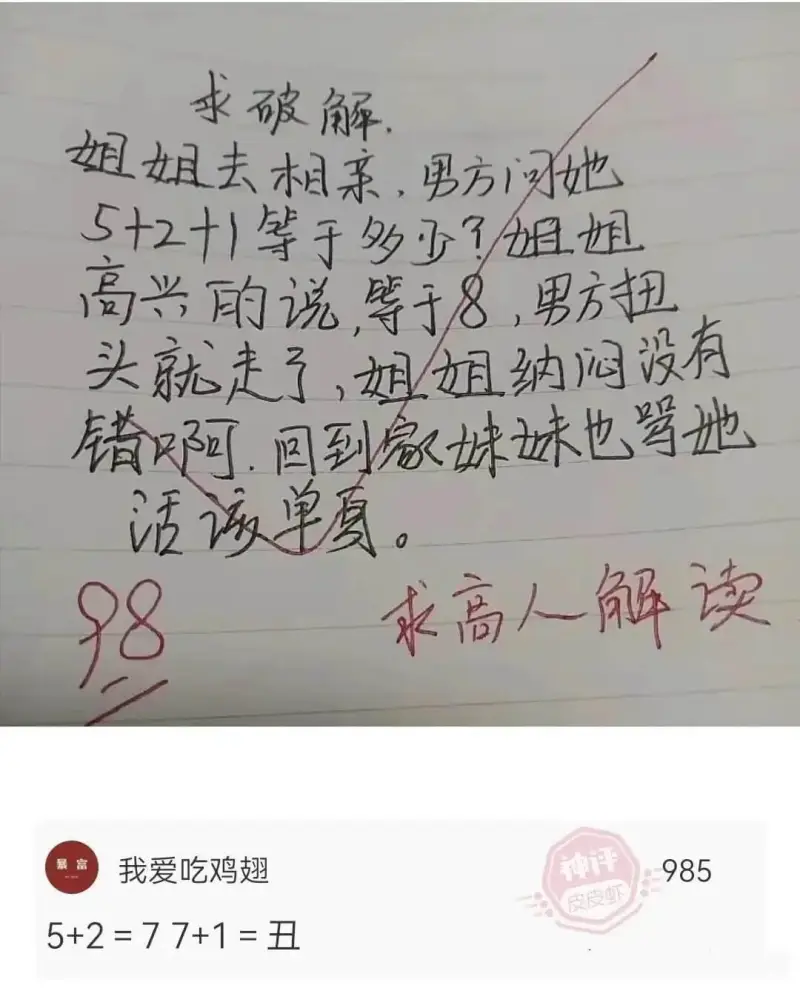 求破解.
姐姐去相亲,男方问她
5+2+1等于多少?姐姐
高兴的说,等于8,男方扭
头就走了,姐姐纳闷没有
错啊.回到家妹妹也骂她
活该单身。
98
求高人解读
暴富
我爱吃鸡翅
神评
皮皮虾
985
5+2=7 7+1=丑